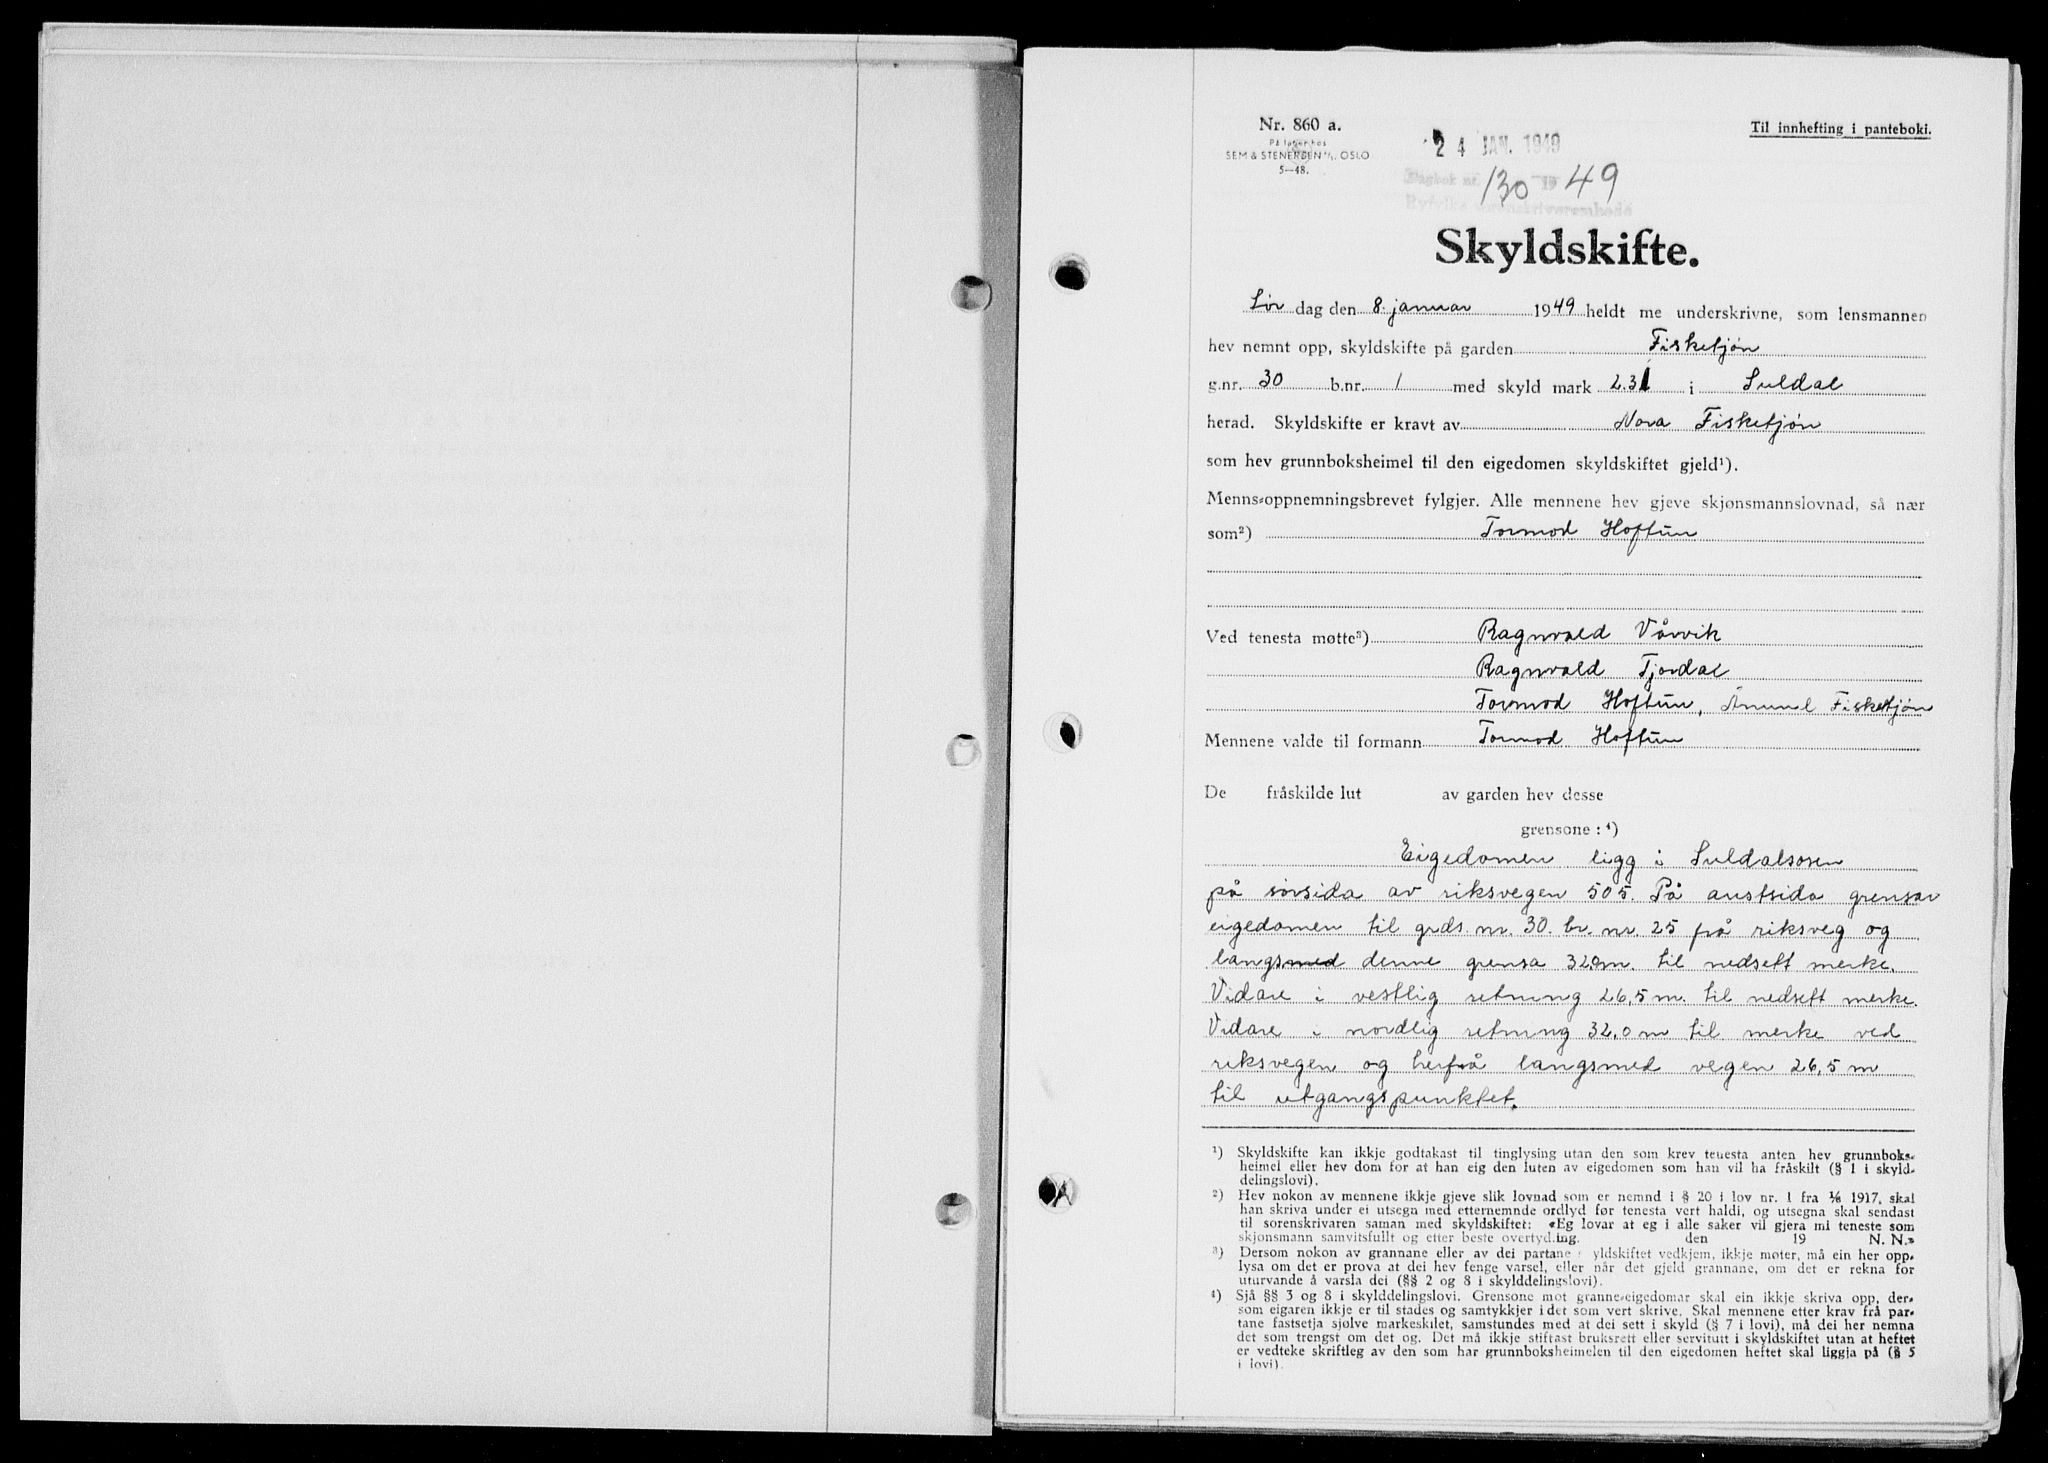 Nr. 860 a.
På lager hos
SEM & STENERSEN A/S. OSLO
5—48.
24 JAN. 1949
Dagbok nr. 130 19 49
Ryfylke sorenskriverembede
Til innhefting i panteboki.
Skyldskifte.
Lør dag den 8. januar 1949 heldt me underskrivne, som lensmannen
hev nemnt opp, skyldskifte på garden Fisketjøn
g.nr. 30 b.nr. 1 med skyld mark 2.31 i Suldal
herad. Skyldskifte er kravt av Nora Fisketjøn
som hev grunnboksheimel til den eigedomen skyldskiftet gjeld¹).
Menns-oppnemningsbrevet fylgjer. Alle mennene hev gjeve skjønsmannslovnad, så nær
som²) Tormod Hoftun
Ved tenesta møtte³) Ragnvald Vårvik
Ragnvald Tjordal
Tormod Hoftun, Åmund Fisketjøn
Mennene valde til formann Tormod Hoftun
De fråskilde lut av garden hev desse
grensone: ⁴)
Eigedomen ligg i Suldalsosen
på sørsida av riksvegen 505. På austsida grensar
eigedomen til grds. nr. 30. br. nr. 25 på riksveg og
langsmed denne grensa 32,0m. til nedsett merke.
Vidare i vestlig retning 26,5 m. til nedsett merke.
Vidare i nordlig retning 32,0 m til merke ved
riksvegen og herfrå langsmed vegen 26,5 m
til utgangspunktet.
¹) Skyldskifte kan ikkje godtakast til tinglysing utan den som krev tenesta anten hev grunnboks-
heimel eller hev dom for at han eig den luten av eigedomen som han vil ha fråskilt (§ 1 i skyld-
delingslovi).
²) Hev nokon av mennene ikkje gjeve slik lovnad som er nemnd i § 20 i lov nr. 1 fra 1/6 1917, skal
han skriva under ei utsegn med etternemnde ordlyd før tenesta vert haldi, og utsegna skal sendast
til sorenskrivaren saman med skyldskiftet: «Eg lovar at eg i alle saker vil gjera mi teneste som
skjønsmann samvitsfullt og etter beste overtyding. den 19 N. N.»
³) Dersom nokon av grannane eller av dei partane yldskiftet vedkjem, ikkje møter, må ein her opp-
lysa om det er prova at dei hev fenge varsel, eller når det gjeld grannane, om det er rekna for
uturvande å varsla dei (§§ 2 og 8 i skylddelingslovi).
⁴) Sjå §§ 3 og 8 i skylddelingslovi. Grensone mot granne-eigedomar skal ein ikkje skriva opp, der-
som eigaren ikkje er til stades og samtykkjer i det som vert skrive. Skal mennene etter krav frå par-
tane fastsetja sjølve markeskilet, samstundes med at dei sett i skyld (§ 7 i lovi), må dei her nemna
det som trengst om det og. Det må ikkje stiftast bruksrett eller servitutt i skyldskiftet utan at heftet
er vedteke skriftleg av den som har grunnboksheimelen til den eigedomen heftet skal liggja på (§ 5
i lovi).